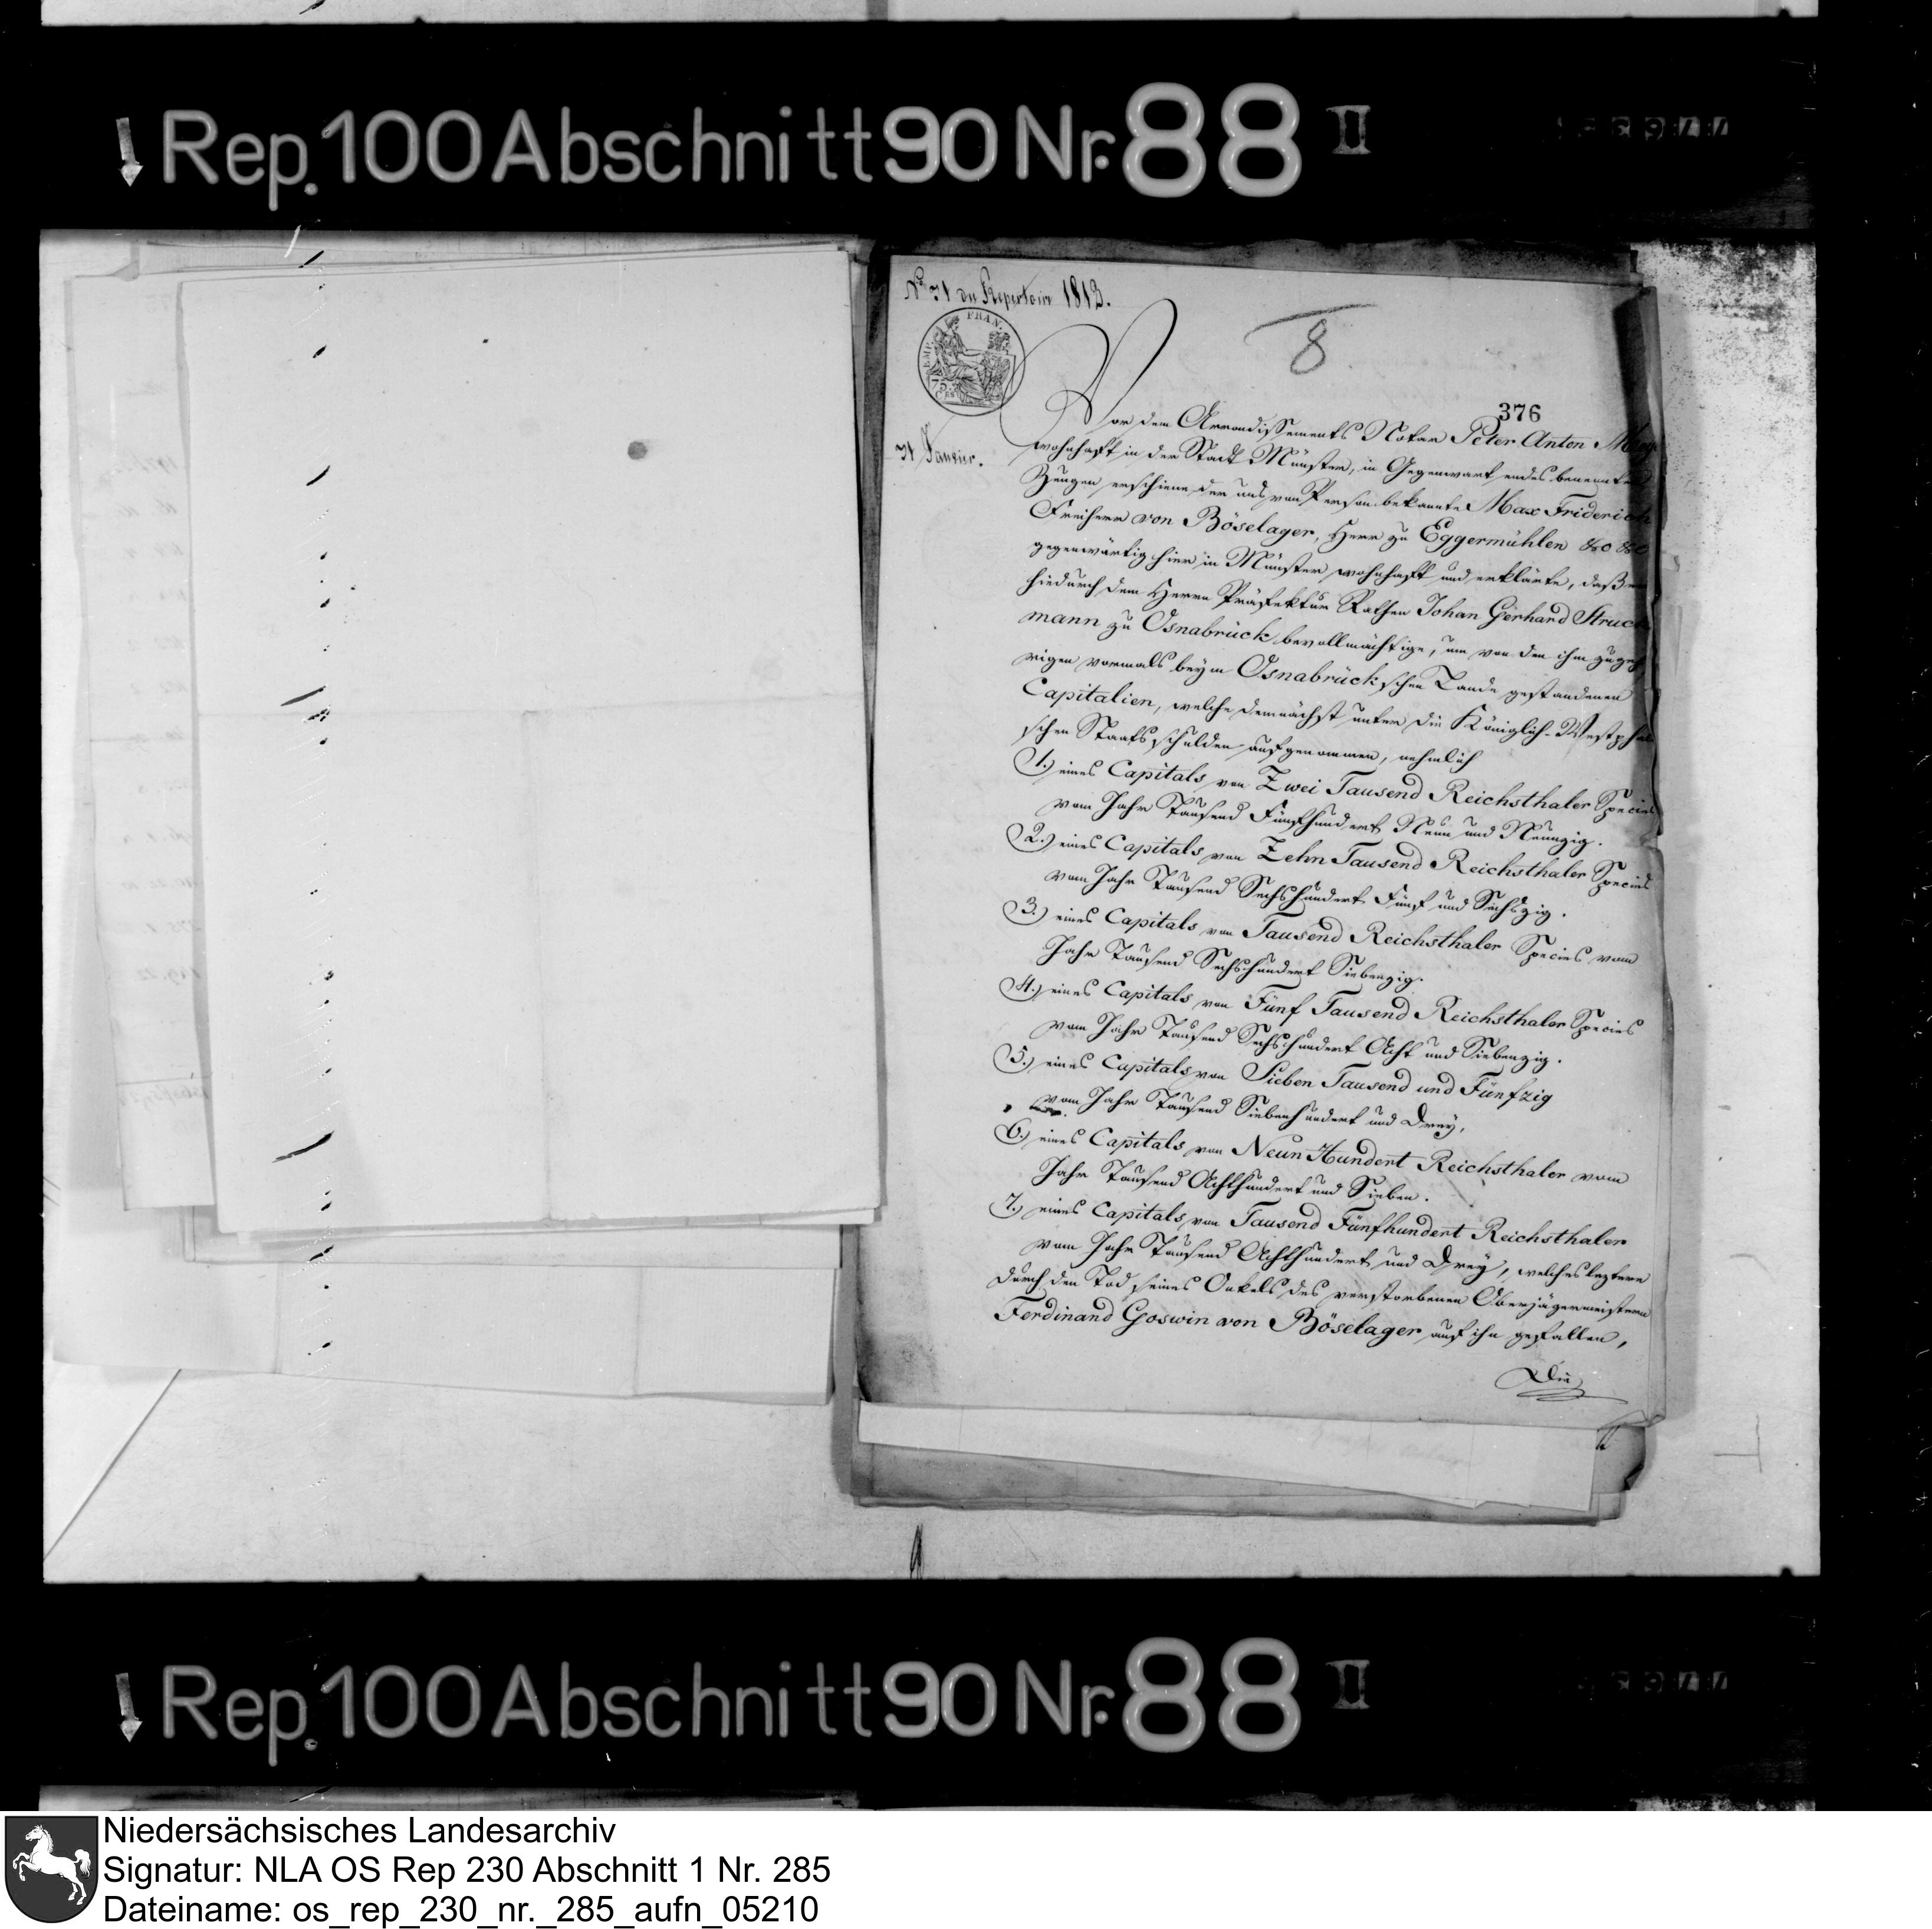 Rep. 100 Abschnitt 90 Nr. 88 II
No 31 du Repertoire 1812.
8
EMP. FRAN.
75
CES
376
31 Janvier.
Vor dem Arrondissements Notar Peter Anton
wohnhaft in der Stadt Münster, in Gegenwart endes benennter
Zeugen erschiene der uns von Person bekannte Max Friderich
Freiherr von Böselager, Herr zu Eggermühlen &c &c
gegenwärtig hier in Münster wohnhaft und erklärte, daß er
hiedurch dem Herrn Präfektur Rathen Johan Gerhard Struck
mann zu Osnabrück bevollmächtige, um von den ihm zugehö
rigen vormals beym Osnabrückschen Lande gestandenen
Capitalien, welche demnächst unter die Königlich-Westphäli
schen Staatsschulden aufgenommen, nehmlich
1.) eines Capitals von Zwei Tausend Reichsthaler Species
vom Jahr Tausend Fünfhundert Neun und Neunzig.
2.) eines Capitals von Zehn Tausend Reichsthaler Species
vom Jahr Tausend Sechshundert Fünf und Sechszig.
3.) eines Capitals von Tausend Reichsthaler Species vom
Jahr Tausend Sechshundert Siebenzig.
4.) eines Capitals von Fünf Tausend Reichsthaler Species
vom Jahr Tausend Sechshundert Acht und Siebenzig.
5.) eines Capitals von Sieben Tausend und Fünfzig
vom Jahr Tausend Siebenhundert und Drey,
6.) eines Capitals von Neun Hundert Reichsthaler vom
Jahr Tausend Achthundert und Sieben.
7.) eines Capitals von Tausend Fünfhundert Reichsthaler
vom Jahr Tausend Achthundert und Drey, welches leztere
durch den Tod seines Onkels des verstorbenen Oberjägermeistern
Ferdinand Goswin von Böselager auf ihn gefallen,
Die
Rep. 100 Abschnitt 90 Nr. 88 II
Niedersächsisches Landesarchiv
Signatur: NLA OS Rep 230 Abschnitt 1 Nr. 285
Dateiname: os_rep_230_nr._285_aufn_05210